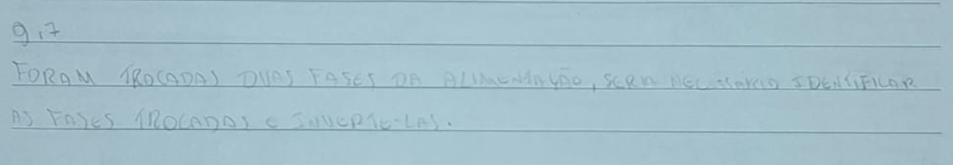 9.7
FORAM TROCADAS DUAS FASES DA ALIMENTAÇÃO, SERA NECESSÁRIO IDENTIFICAR
AS FASES TROCADAS E INVERTE-LAS.